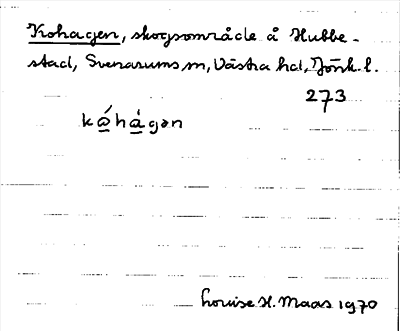 Kohagen, skogsområde å Hubbe-
stad, Svenarums sn, Västra hd, Jönk. l.
273
kǻhágən
Louise H. Maas 1970